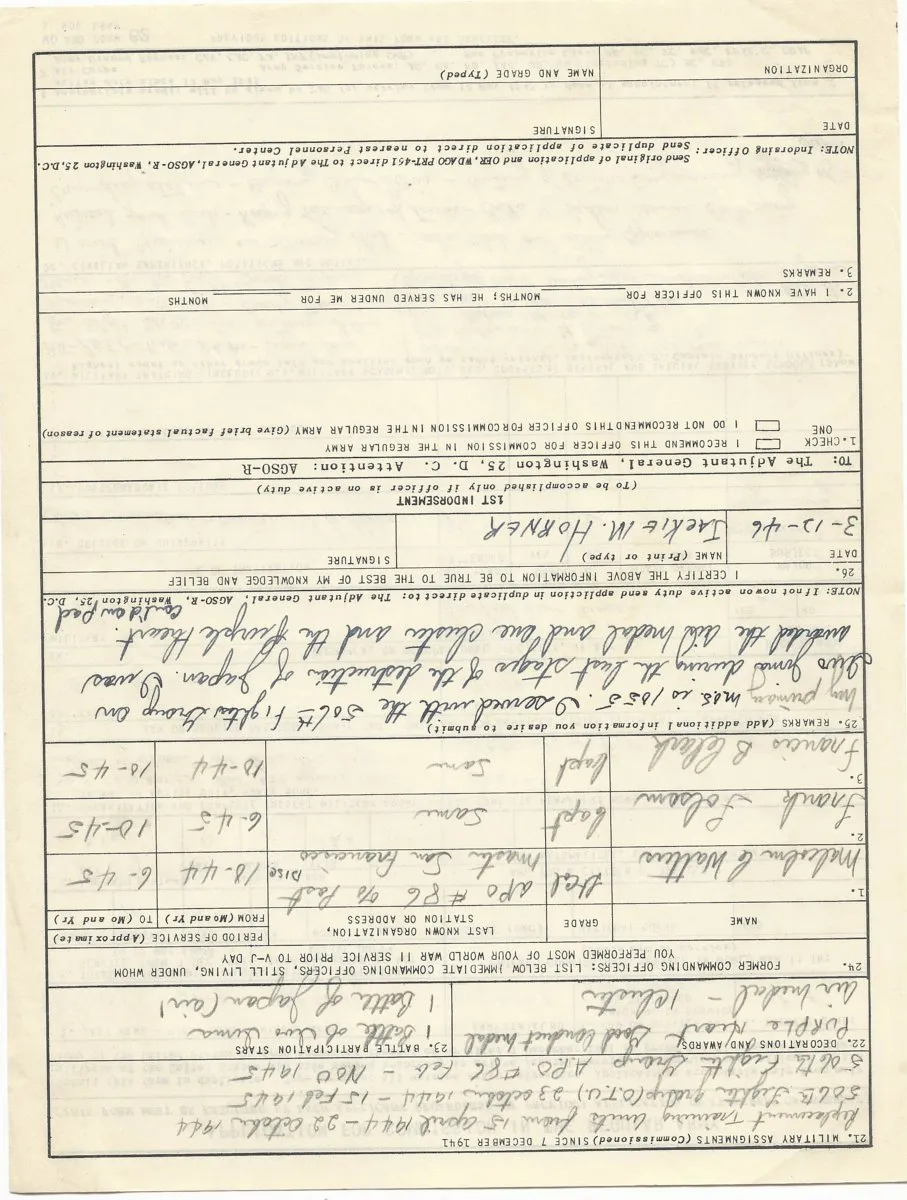 21. MILITARY ASSIGNMENTS (Commissioned) SINCE 7 DECEMBER 1941
Replacement Training Units from 15 april 1944 - 22 october 1944
506th Fighter group (O.T.U) 23 october 1944 - 15 Feb 1945
506th Fighter Group APO #86 Feb - Nov 1945
22. DECORATIONS AND AWARDS
PURPLE Heart Good Conduct medal
Air medal - 1 Cluster
23. BATTLE PARTICIPATION STARS
1 Battle of Iwo Jima
1 Battle of Japan (air)
24. FORMER COMMANDING OFFICERS: LIST BELOW IMMEDIATE COMMANDING OFFICERS, STILL LIVING, UNDER WHOM
YOU PERFORMED MOST OF YOUR WORLD WAR II SERVICE PRIOR TO V-J DAY
NAME
GRADE
LAST KNOWN ORGANIZATION,
STATION OR ADDRESS
PERIOD OF SERVICE (Approximate)
FROM (Mo and Yr)
TO (Mo and Yr)
1. Malcolm C Watters
APO #86 % Post
Master San Francisco
10-44
6-45
2. Frank Folsom
Capt
Same
6-45
10-45
3. Francis B Clark
Capt
Same
10-44
10-45
25. REMARKS (Add additional information you desire to submit)
My primary mos is 1055. I served with the 506th Fighter Group on
Iwo Jima during the last stages of the destruction of Japan. I was
awarded the air medal and one cluster and the Purple Heart.
NOTE: If not now on active duty send application in duplicate direct to: The Adjutant General, AGSO-R, Washington 25, D.C.
26. I CERTIFY THE ABOVE INFORMATION TO BE TRUE TO THE BEST OF MY KNOWLEDGE AND BELIEF
DATE
3-12-46
NAME (Print or type)
JACKIE M. HORNER
SIGNATURE
1ST INDORSEMENT
(To be accomplished only if officer is on active duty)
TO: The Adjutant General, Washington 25, D. C. Attention: AGSO-R
1. CHECK ONE
I RECOMMEND THIS OFFICER FOR COMMISSION IN THE REGULAR ARMY
I DO NOT RECOMMEND THIS OFFICER FOR COMMISSION IN THE REGULAR ARMY (Give brief factual statement of reason)
2. I HAVE KNOWN THIS OFFICER FOR MONTHS; HE HAS SERVED UNDER ME FOR MONTHS
3. REMARKS
NOTE: Indorsing Officer: Send original of application and OER, WD AGO PRT-451 direct to The Adjutant General, AGSO-R, Washington 25, D.C.
Send duplicate of application to nearest Personnel Center.
DATE
SIGNATURE
ORGANIZATION
NAME AND GRADE (Typed)